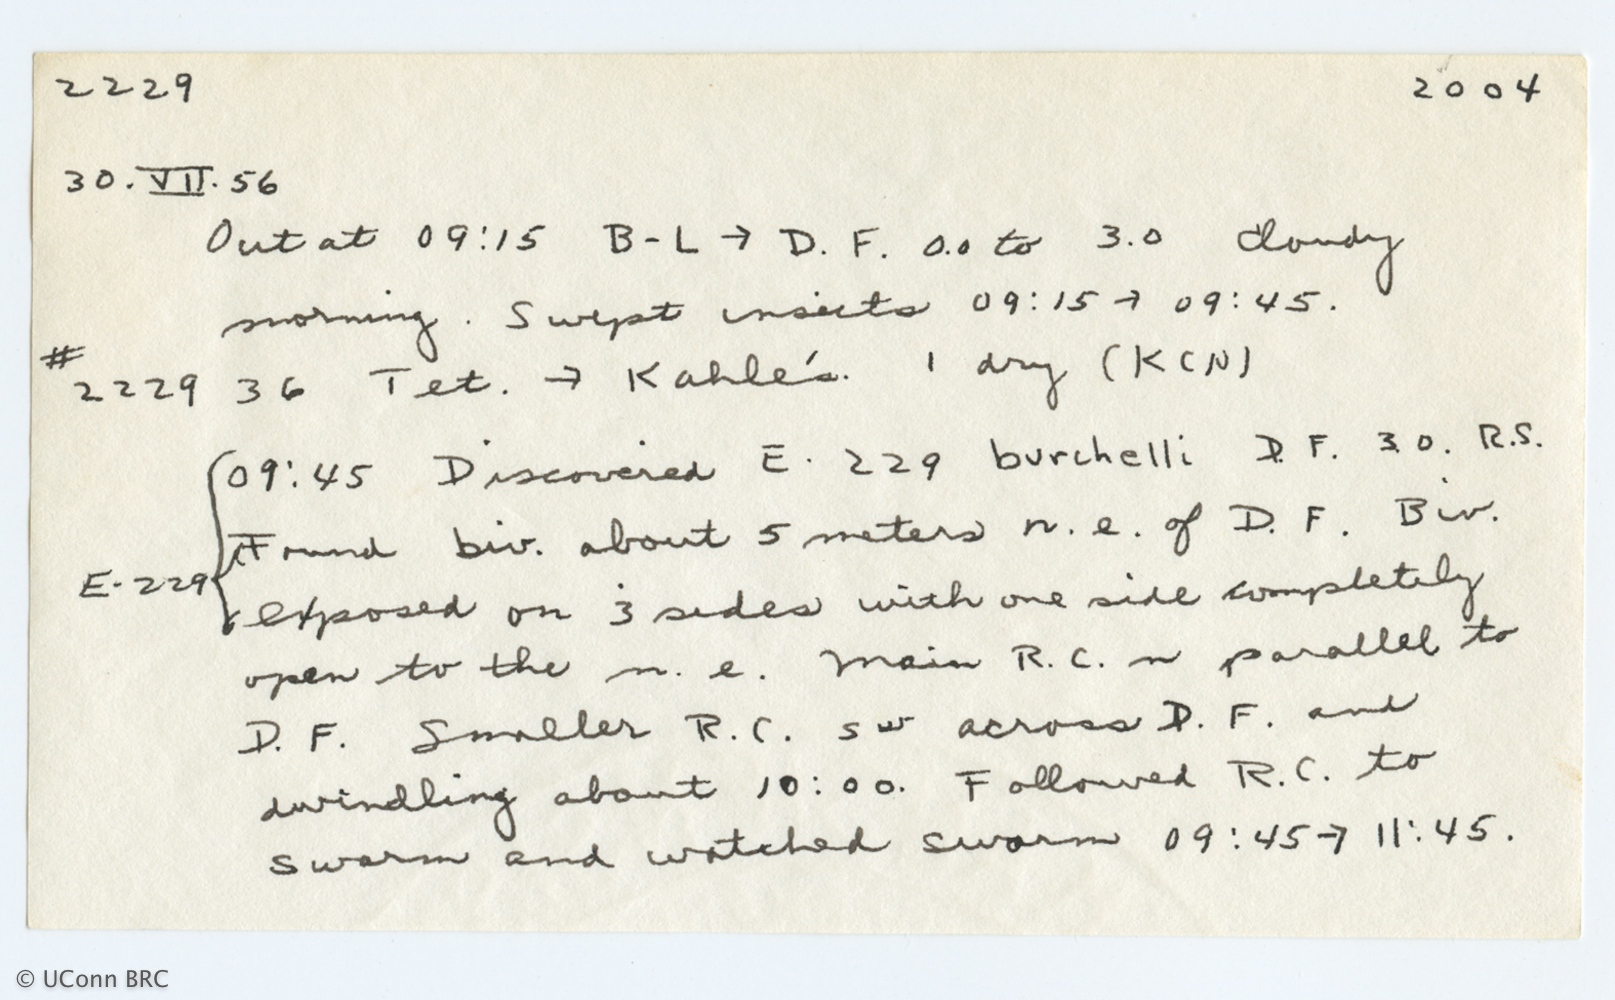 2229 2004
30.VII.56
Out at 09:15 B-L → D. F. 0.0 to 3.0 cloudy
morning. Swept insects 09:15 → 09:45.
# 2229 36 Tet. → Kahle's. 1 dry (KCN)
09:45 Discovered E-229 burchelli D.F. 3.0. R.S.
Found biv. about 5 meters n.e. of D. F. Biv.
E-229 exposed on 3 sides with one side completely
open to the n. e. Main R.C. n parallel to
D. F. Smaller R.C. sw across D. F. and
dwindling about 10:00. Followed R.C. to
swarm and watched swarm 09:45 → 11:45.
© UConn BRC